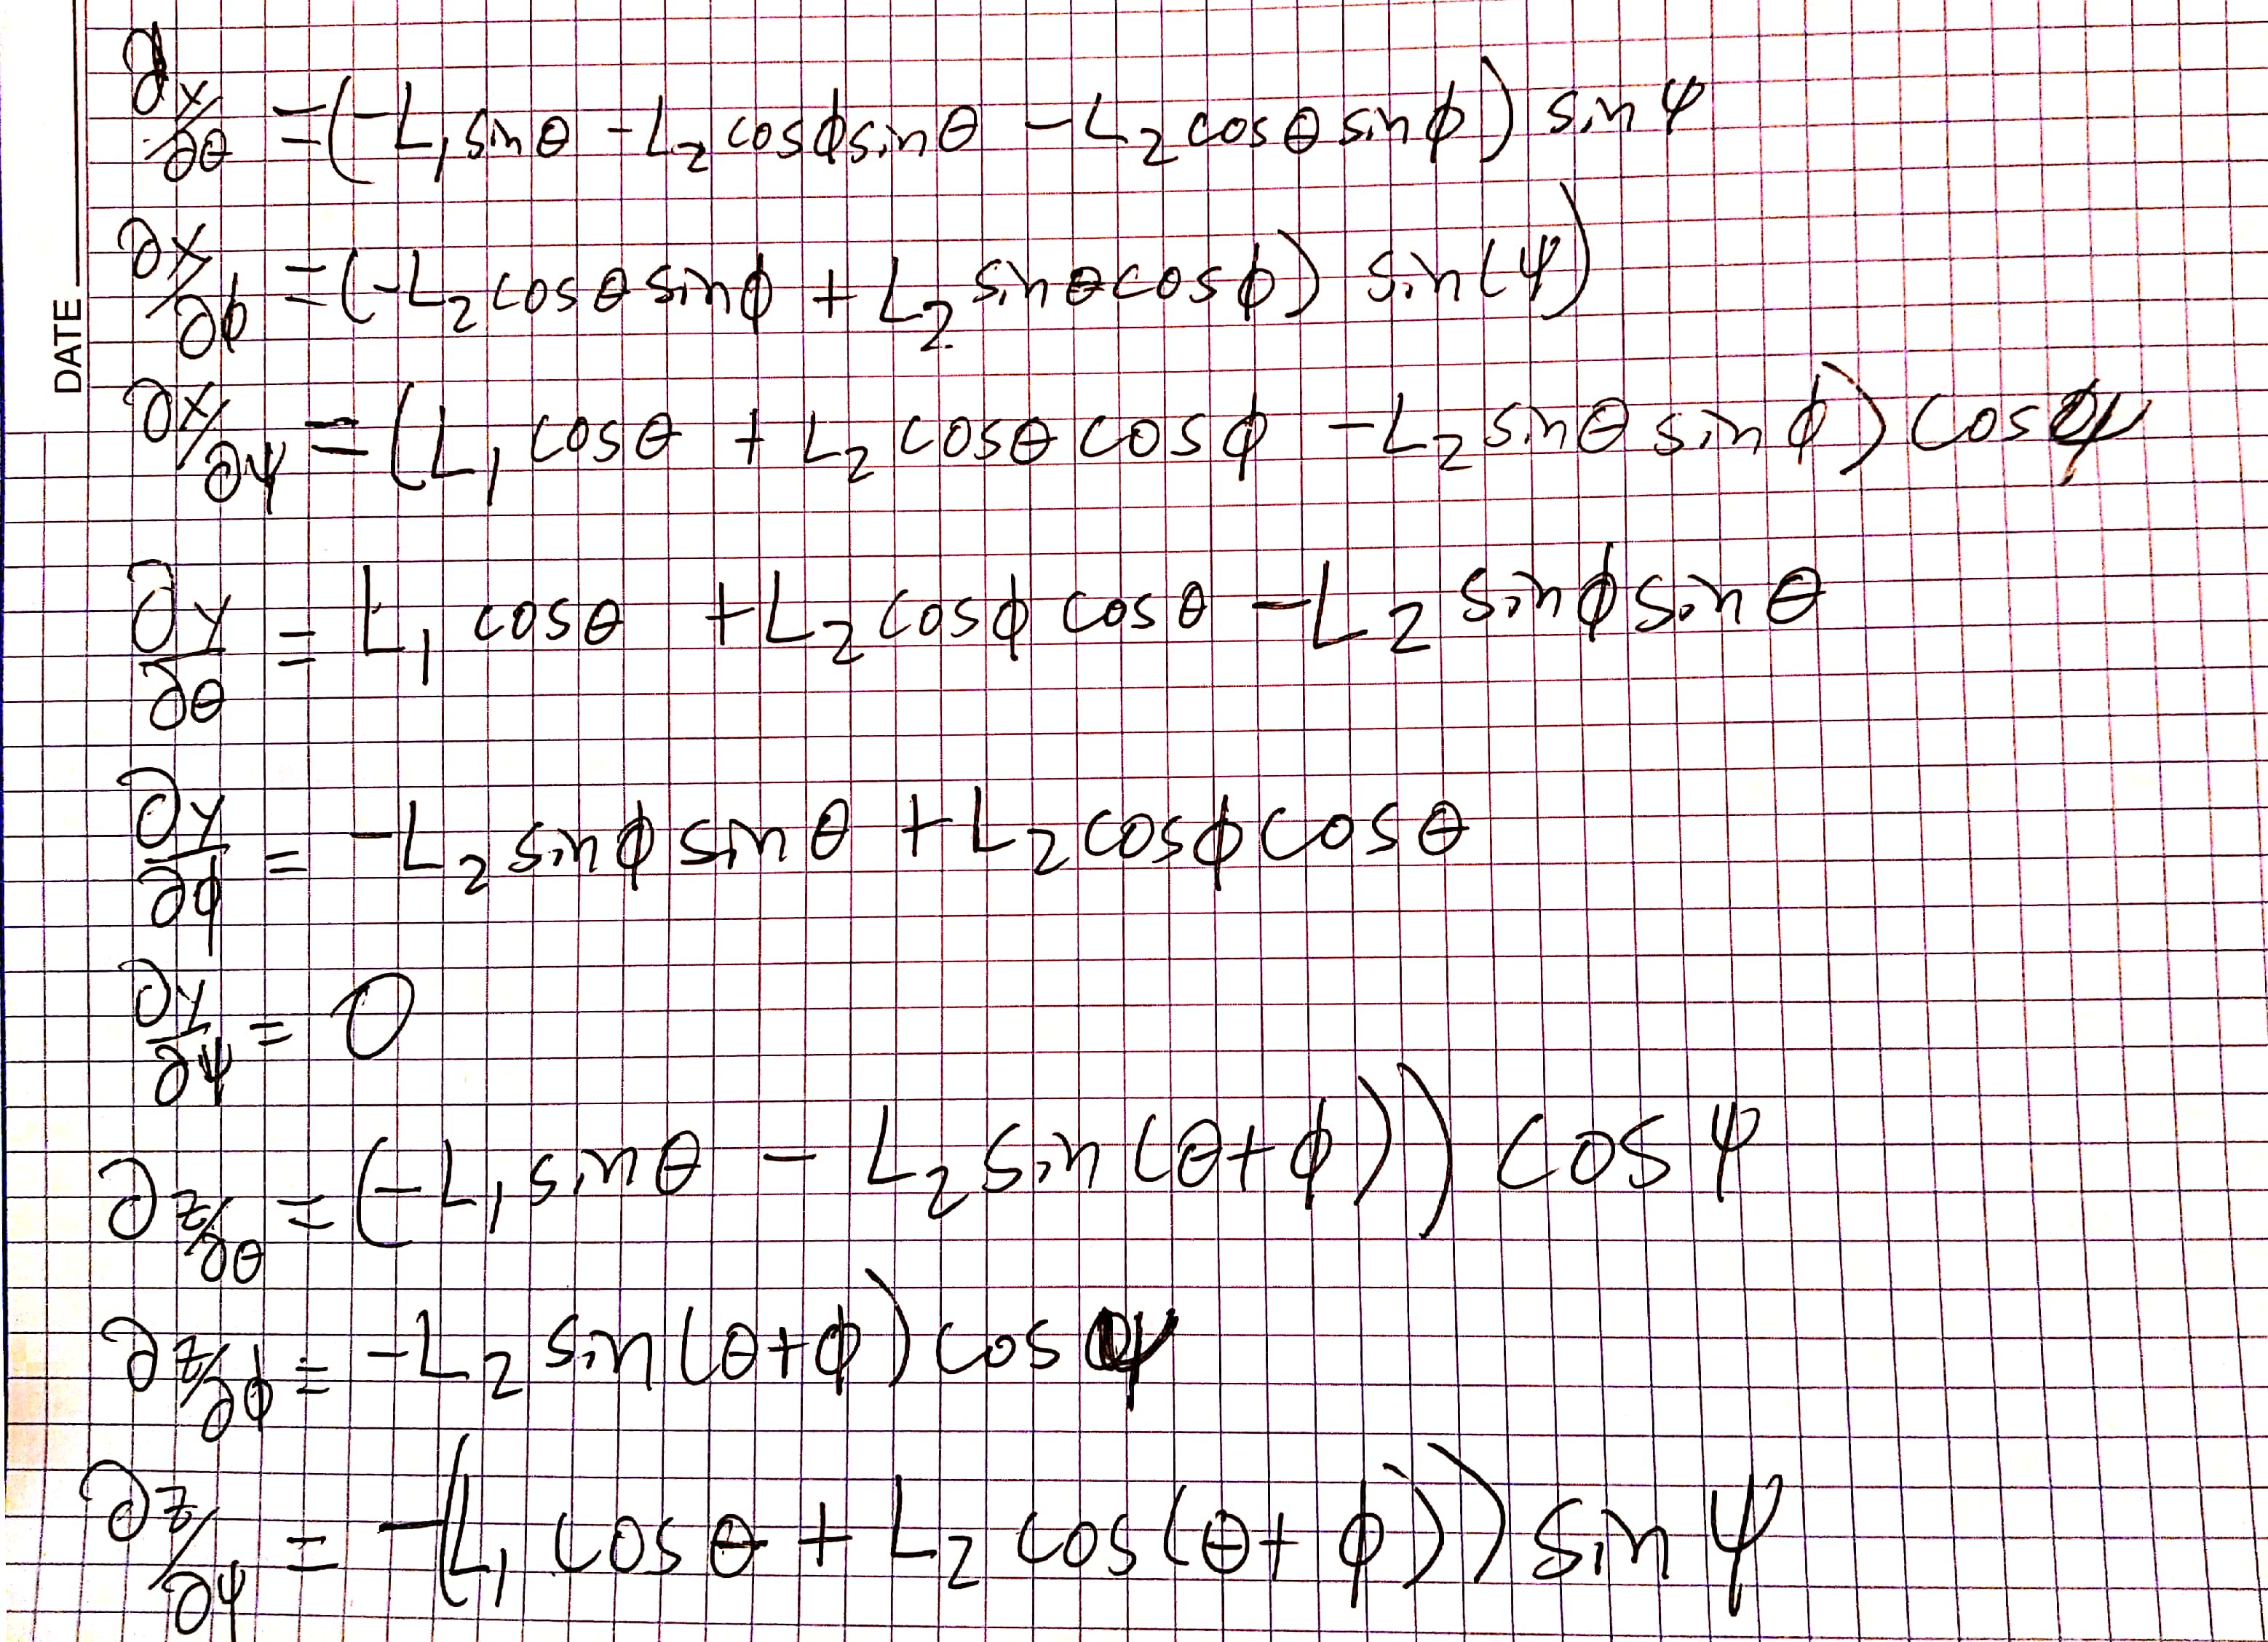 DATE
∂x/∂θ = (-L₁sinθ - L₂cosϕsinθ - L₂cosθsinϕ) sinψ
∂x/∂ϕ = (-L₂cosθsinϕ + L₂sinθcosϕ) sin(ψ)
∂x/∂ψ = (L₁cosθ + L₂cosθcosϕ - L₂sinθsinϕ) cosψ
∂y/∂θ = L₁cosθ + L₂cosϕcosθ - L₂sinϕsinθ
∂y/∂ϕ = -L₂sinϕsinθ + L₂cosϕcosθ
∂y/∂ψ = 0
∂z/∂θ = (-L₁sinθ - L₂sin(θ+ϕ)) cosψ
∂z/∂ϕ = -L₂sin(θ+ϕ) cosψ
∂z/∂ψ = -(L₁cosθ + L₂cos(θ+ϕ)) sinψ